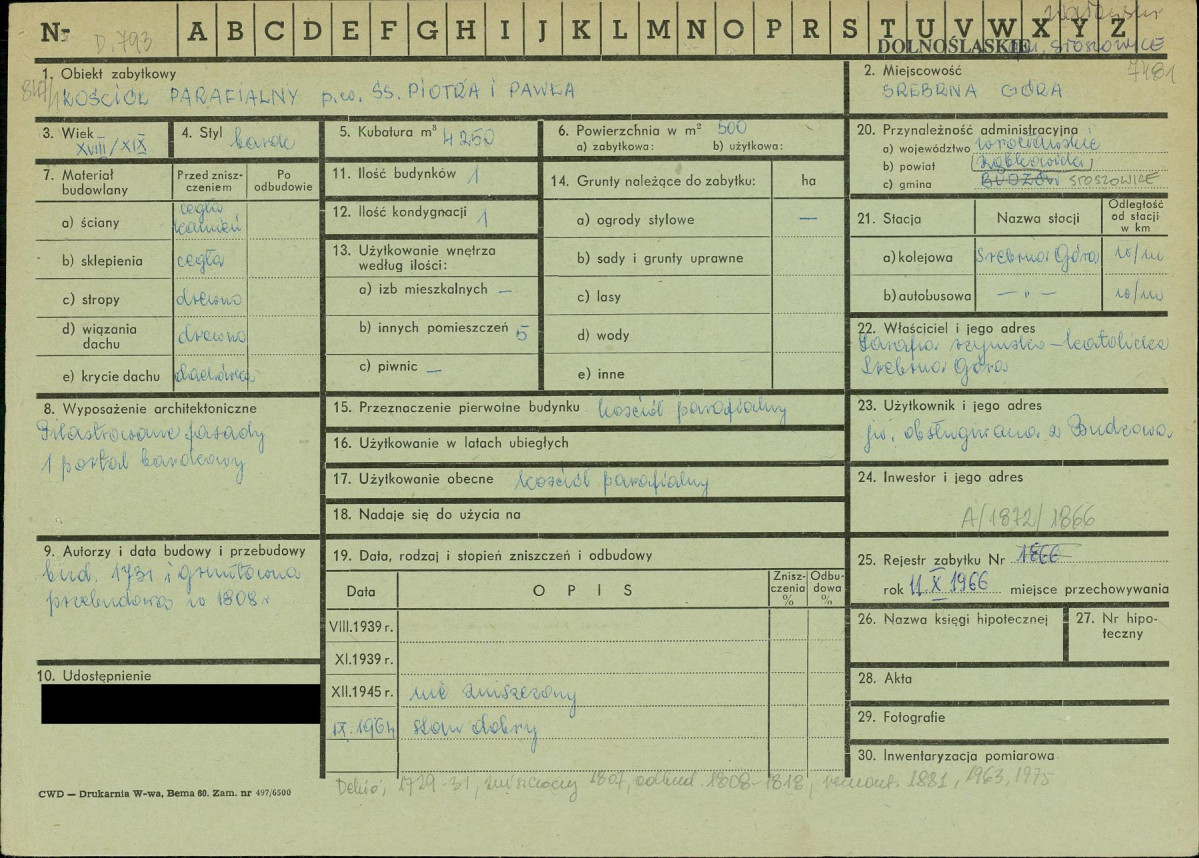 Nr D.793 A B C D E F G H I J K L M N O P R S T U V W X Y Z
DOLNOŚLĄSKIE gm. STOSZOWICE
7481
1. Obiekt zabytkowy
KOŚCIÓŁ PARAFIALNY p.w. SS. PIOTRA I PAWŁA
2. Miejscowość
SREBRNA GÓRA
3. Wiek
XVIII/XIX
4. Styl barok
5. Kubatura m³ 4250
6. Powierzchnia w m² 500
a) zabytkowa: b) użytkowa:
20. Przynależność administracyjna
a) województwo wrocławskie
b) powiat Ząbkowicki
c) gmina BUDZÓW STOSZOWICE
7. Materiał budowlany
Przed zniszczeniem
Po odbudowie
a) ściany cegła kamień
b) sklepienia cegła
c) stropy drewno
d) wiązania dachu drewno
e) krycie dachu dachówka
11. Ilość budynków 1
12. Ilość kondygnacji 1
13. Użytkowanie wnętrza
według ilości:
a) izb mieszkalnych —
b) innych pomieszczeń 5
c) piwnic —
14. Grunty należące do zabytku: ha
a) ogrody stylowe —
b) sady i grunty uprawne
c) lasy
d) wody
e) inne
21. Stacja
Nazwa stacji
Odległość od stacji w km
a) kolejowa Srebrna Góra w/m
b) autobusowa — „ — w/m
22. Właściciel i jego adres
Parafia rzymsko-katolicka
Srebrna Góra
8. Wyposażenie architektoniczne
Pilastrowane fasady
1 portal barokowy
15. Przeznaczenie pierwotne budynku kościół parafialny
16. Użytkowanie w latach ubiegłych
17. Użytkowanie obecne kościół parafialny
18. Nadaje się do użycia na
23. Użytkownik i jego adres
jw. obsługiwana z Budzowa
24. Inwestor i jego adres
A/1872/1866
9. Autorzy i data budowy i przebudowy
bud. 1731 i gruntowna
przebudowa w 1808 r
10. Udostępnienie
19. Data, rodzaj i stopień zniszczeń i odbudowy
Data
O P I S
Zniszczenia %
Odbudowa %
VIII.1939 r.
XI.1939 r.
XII.1945 r. nie zniszczony
IX.1964 stan dobry
25. Rejestr zabytku Nr 1866
rok 11.X 1966 miejsce przechowywania
26. Nazwa księgi hipotecznej
27. Nr hipoteczny
28. Akta
29. Fotografie
30. Inwentaryzacja pomiarowa
Dehio, 1729-31, zniszczony 1807, odbud. 1808-1818, remont. 1881, 1963, 1975
CWD — Drukarnia W-wa, Bema 60. Zam. nr 497/6500